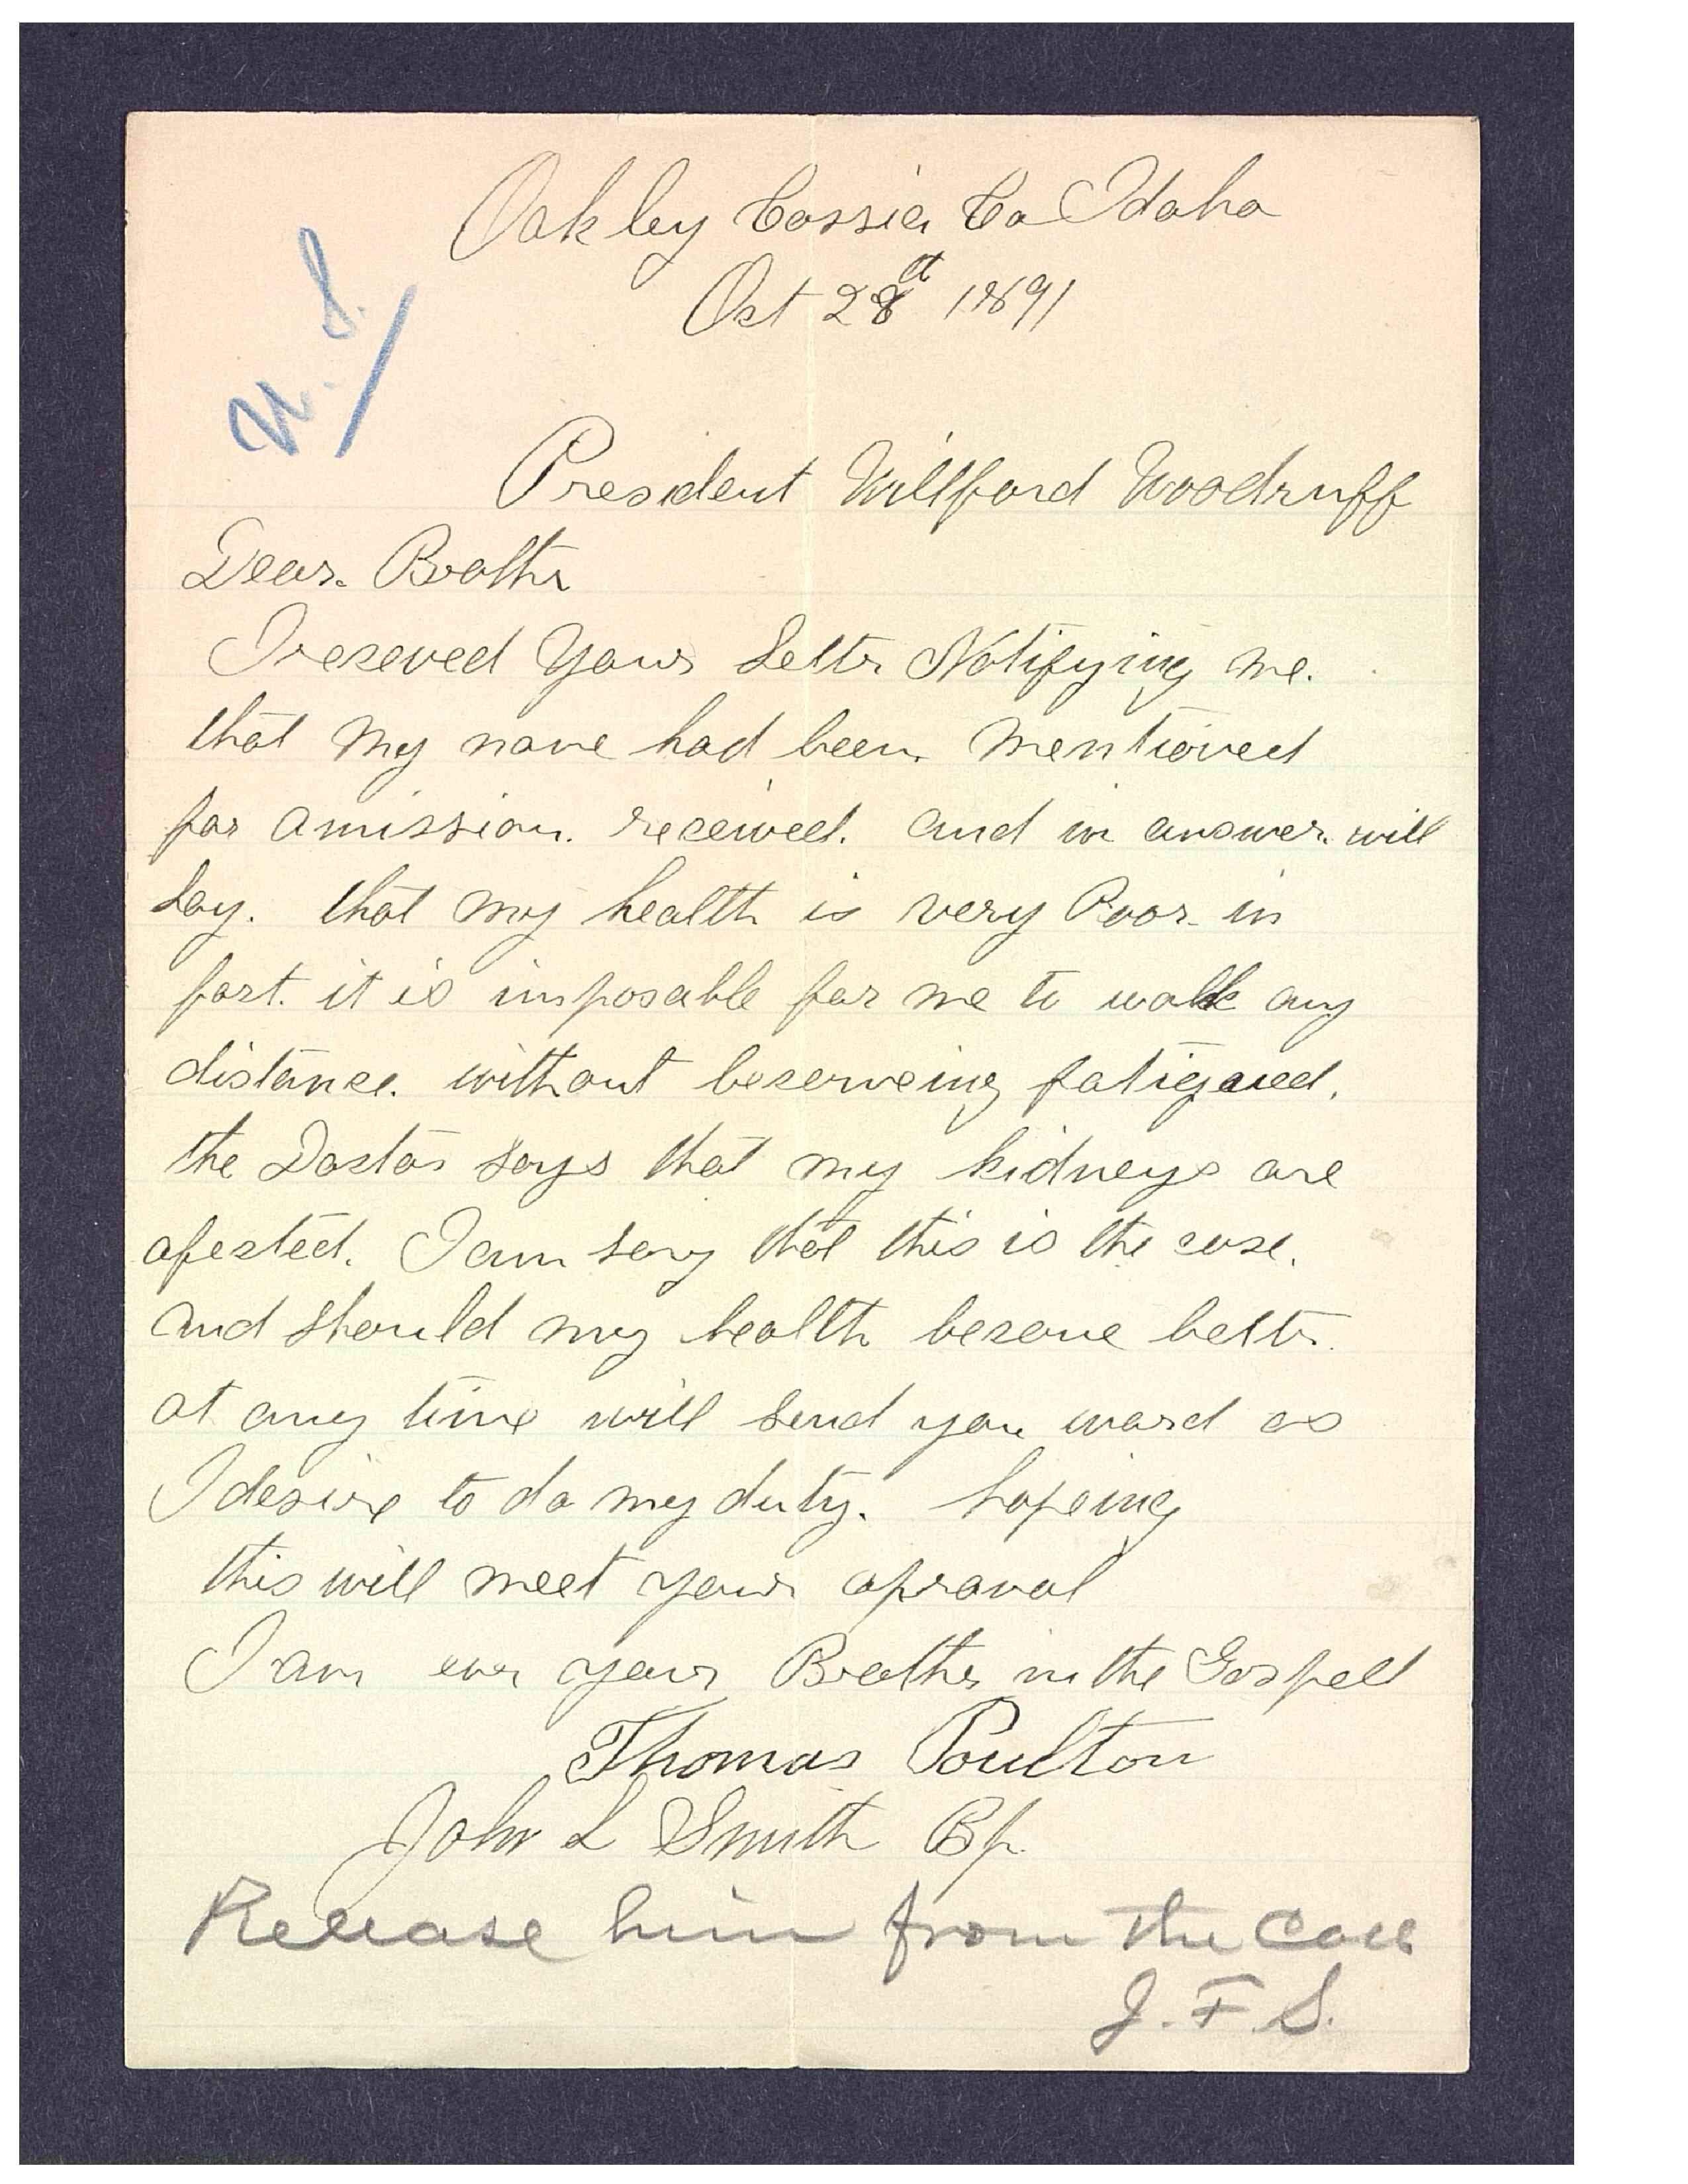 Oakley Cassia Co Idaho
Oct 28th 1891
U. S.
President Willford Woodruff
Dear. Brother
I receved Your Letter Notifying me.
that my name had been mentioned
for a mission. received. and in answer. will
Say. that my health is very Poor. in
fact. it is imposable for me to walk any
distance. without becomeing fatigaued.
the Doctor says that my kidneys are
afected. I am sory that this is the case.
and should my health become better.
at any time will send you word as
I desire to do my duty. hopeing
this will meet your aproval
I am ever your Brother in the Gospell
Thomas Poulton
John L Smith Bp.
Release him from the call
J. F. S.